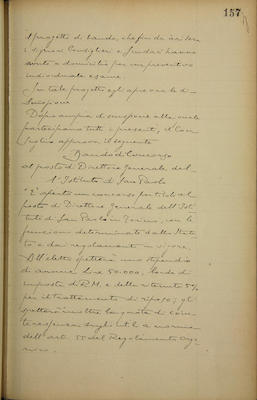 157
il progetto di bando, che fin da ieri
i signori Consiglieri e Sindaci hanno
avuto a domicilio per un preventivo
individuale esame.
Su tale progetto egli apre ora la di-
scussione
Dopo ampia discussione alla quale
partecipano tutti i presenti, il Con-
siglio approva il seguente
Bando di Concorso
al posto di Direttore Generale del-
l'Istituto di San Paolo
"E' aperto un concorso per titoli al
posto di Direttore Generale dell'Isti-
tuto di San Paolo in Torino, con le
funzioni determinate dallo Statu-
to e dai regolamenti in vigore.
All'eletto spetterà uno stipendio
di annue Lire 50.000, lorde di
imposta di R.M. e della ritenuta 5%
per il trattamento di riposo; gli
spetterà inoltre la quota di com-
partecipazione sugli utili a norma
dell'art. 55 del Regolamento Orga-
nico.